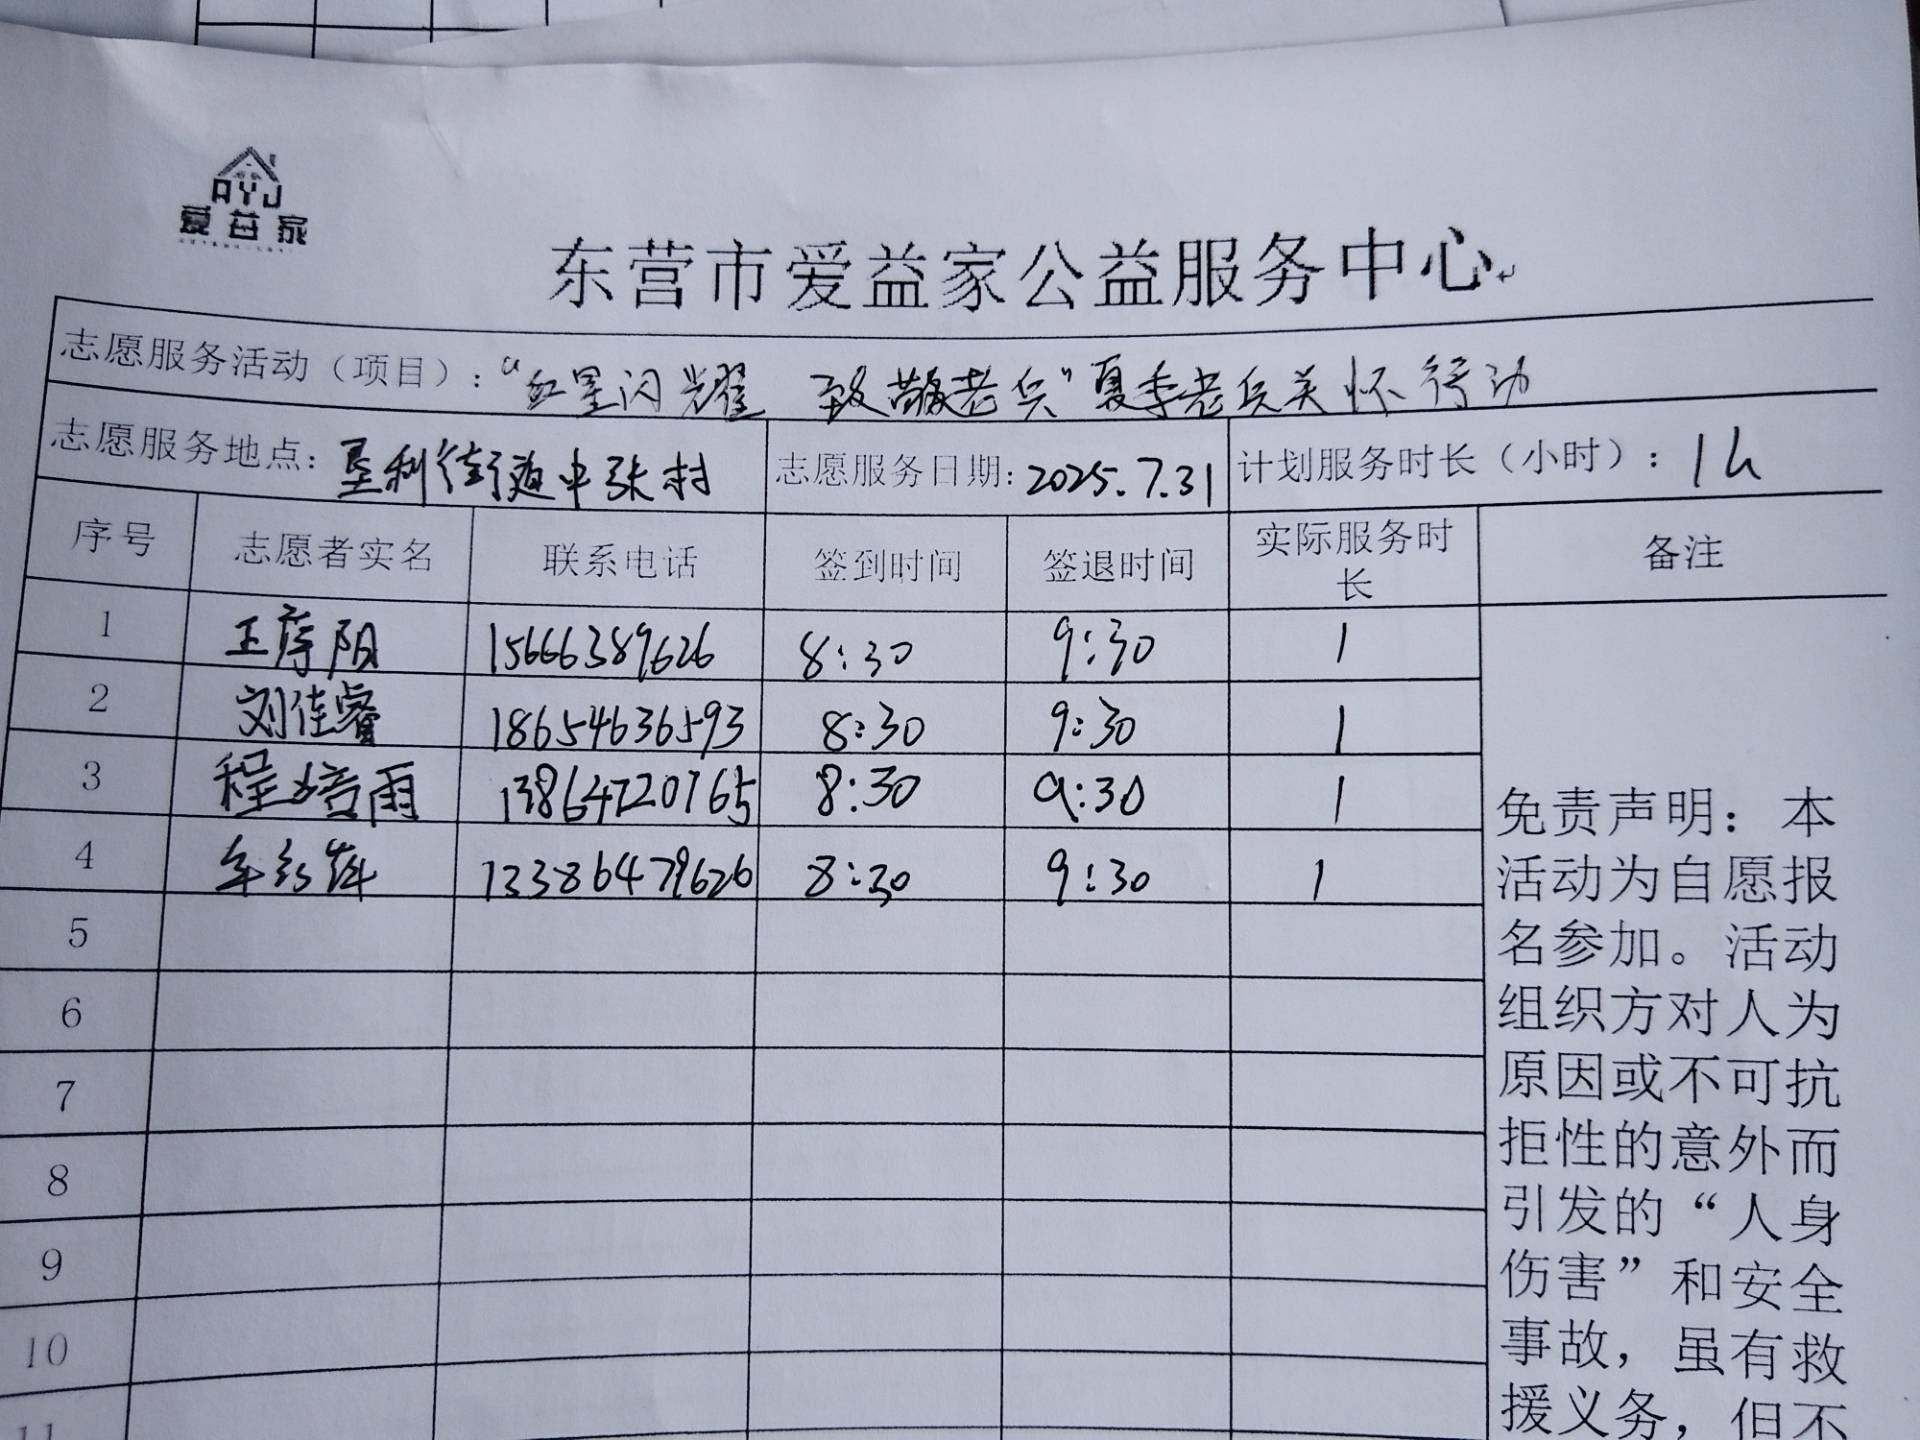 AYJ
爱益家
东营市爱益家公益服务中心
志愿服务活动（项目）：“红星闪耀 致敬老兵”夏季老兵关怀行动
志愿服务地点：垦利街道中张村 志愿服务日期：2025.7.31 计划服务时长（小时）：1h
序号 志愿者实名 联系电话 签到时间 签退时间 实际服务时长 备注
1 王 阳 15666389626 8:30 9:30 1
2 刘佳睿 18654636593 8:30 9:30 1
3 程培雨 13864720765 8:30 9:30 1
4 13386479626 8:30 9:30 1
5
6
7
8
9
10
11
免责声明：本
活动为自愿报
名参加。活动
组织方对人为
原因或不可抗
拒性的意外而
引发的“人身
伤害”和安全
事故，虽有救
援义务，但不